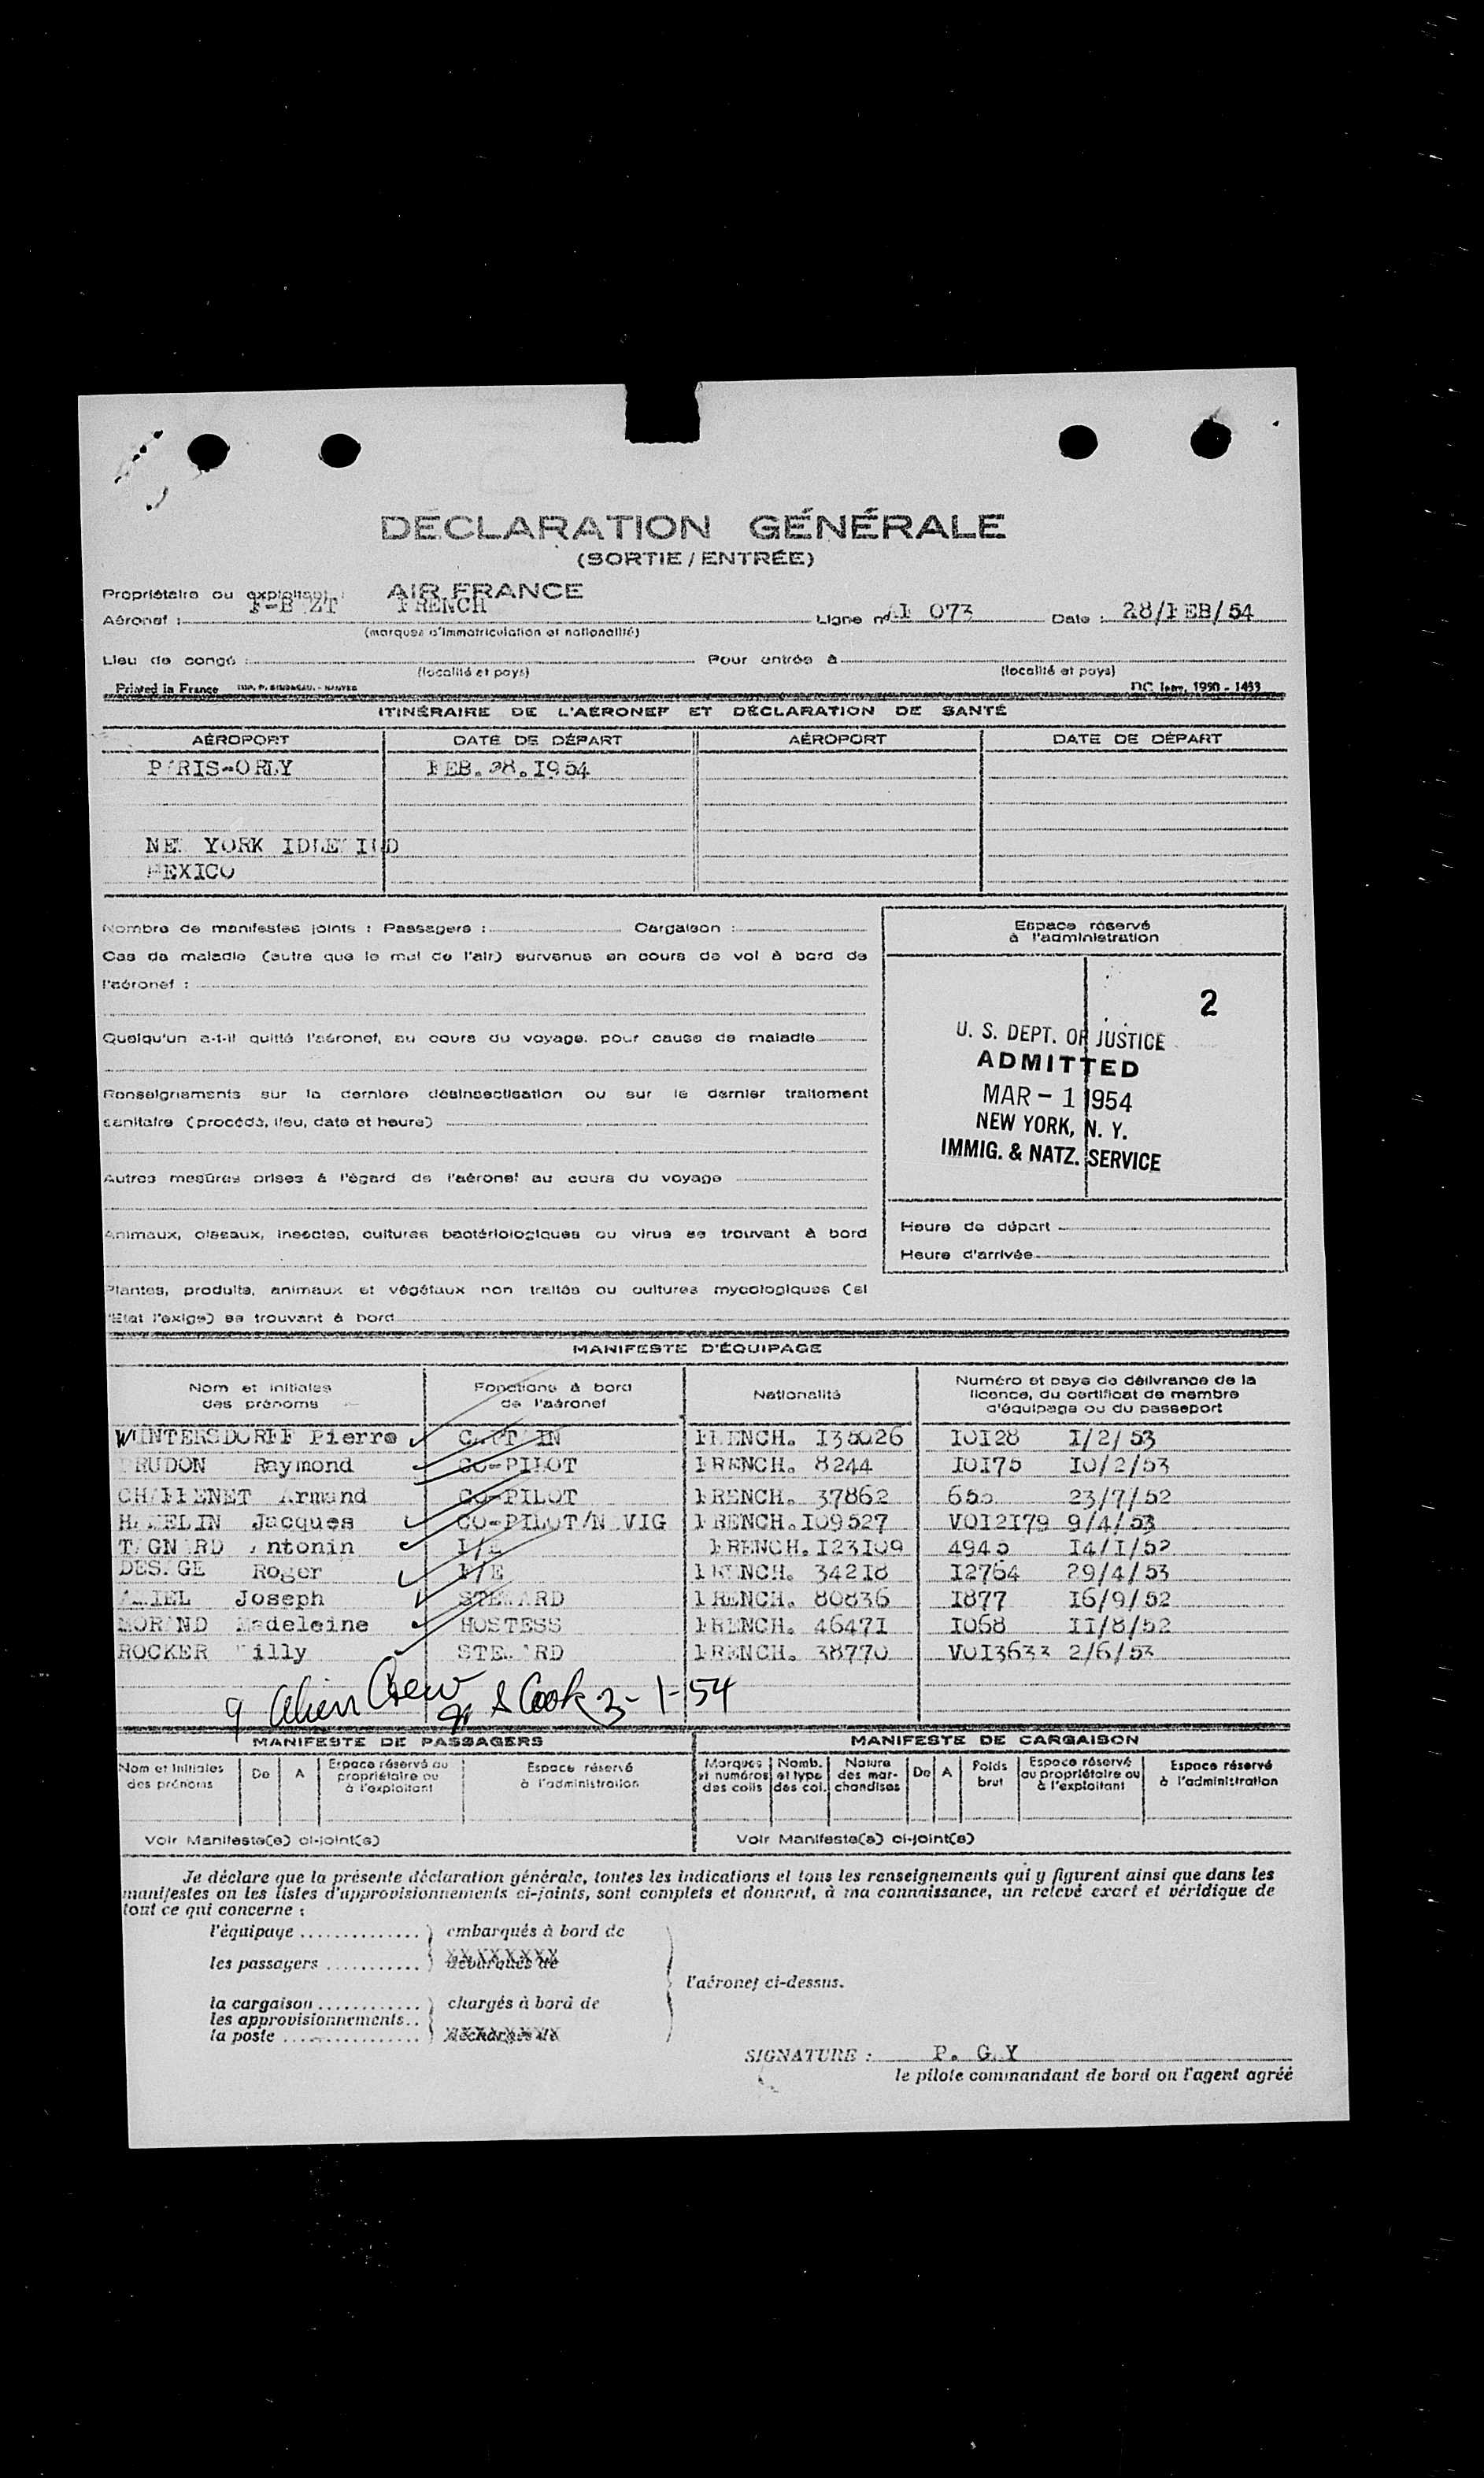 DÉCLARATION GÉNÉRALE
(SORTIE / ENTRÉE)
Propriétaire ou exploitant : AIR FRANCE
Aéronef : FRENCH Ligne n° 073 Date : 28/FEB/54
(marques d'immatriculation et nationalité)
Lieu de congé : Pour entrée à
(localité et pays) (localité et pays)
Printed in France
ITINÉRAIRE DE L'AÉRONEF ET DÉCLARATION DE SANTÉ
AÉROPORT DATE DE DÉPART AÉROPORT DATE DE DÉPART
PARIS-ORLY FEB.28.I954
NEW YORK IDLEWILD
MEXICO
Nombre de manifestes joints : Passagers : Cargaison :
Cas de maladie (autre que le mal de l'air) survenus en cours de vol à bord de
l'aéronef :
Quelqu'un a-t-il quitté l'aéronef, au cours du voyage, pour cause de maladie
Renseignements sur la dernière désinsectisation ou sur le dernier traitement
sanitaire (procédé, lieu, date et heure)
Autres mesures prises à l'égard de l'aéronef au cours du voyage
Animaux, oiseaux, insectes, cultures bactériologiques ou virus se trouvant à bord
Plantes, produits, animaux et végétaux non traités ou cultures mycologiques (si
l'Etat l'exige) se trouvant à bord
Espace réservé
à l'administration
2
U. S. DEPT. OF JUSTICE
ADMITTED
MAR - 1 1954
NEW YORK, N. Y.
IMMIG. & NATZ. SERVICE
Heure de départ
Heure d'arrivée
MANIFESTE D'ÉQUIPAGE
Nom et initiales des prénoms Fonctions à bord de l'aéronef Nationalité Numéro et pays de délivrance de la licence, du certificat de membre d'équipage ou du passeport
WUNTERSDORFF Pierre CAPTAIN FRENCH. I35026 I0I28 I/2/53
PRUDON Raymond CO-PILOT FRENCH. 8244 I0I75 I0/2/53
Armand CO-PILOT FRENCH. 37862 655 23/7/52
HAMELIN Jacques CO-PILOT/NAVIG FRENCH.I09527 V0I2I79 9/4/53
TAGNARD Antonin FRENCH.I23I09 4945 I4/I/52
DESAGE Roger FRENCH. 342I8 I2764 29/4/53
Joseph STEWARD FRENCH. 80836 I877 I6/9/52
MORAND Madeleine HOSTESS FRENCH. 4647I I068 II/8/52
ROCKER Willy STEWARD FRENCH. 38770 V0I3633 2/6/53
9 Alien Crew Cook 3-1-54
MANIFESTE DE PASSAGERS MANIFESTE DE CARGAISON
Nom et initiales des prénoms De A Espace réservé au propriétaire ou à l'exploitant Espace réservé à l'administration Marques et numéros des colis Nomb. et type des col. Nature des mar-chandises De A Poids brut Espace réservé au propriétaire ou à l'exploitant Espace réservé à l'administration
Voir Manifeste(s) ci-joint(s) Voir Manifeste(s) ci-joint(s)
Je déclare que la présente déclaration générale, toutes les indications et tous les renseignements qui y figurent ainsi que dans les
manifestes ou les listes d'approvisionnements ci-joints, sont complets et donnent, à ma connaissance, un relevé exact et véridique de
tout ce qui concerne :
l'équipage embarqués à bord de
les passagers débarqués de
l'aéronef ci-dessus.
la cargaison chargés à bord de
les approvisionnements..
la poste déchargés de
SIGNATURE : P. GAY
le pilote commandant de bord ou l'agent agréé